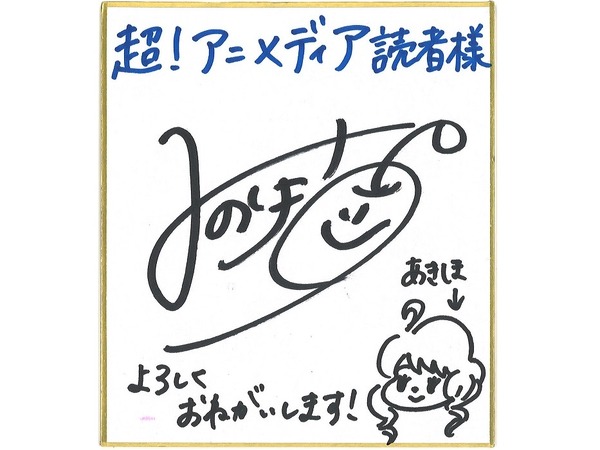 超!アニメディア読者様
あきしほ
よろしく
おねがいします!